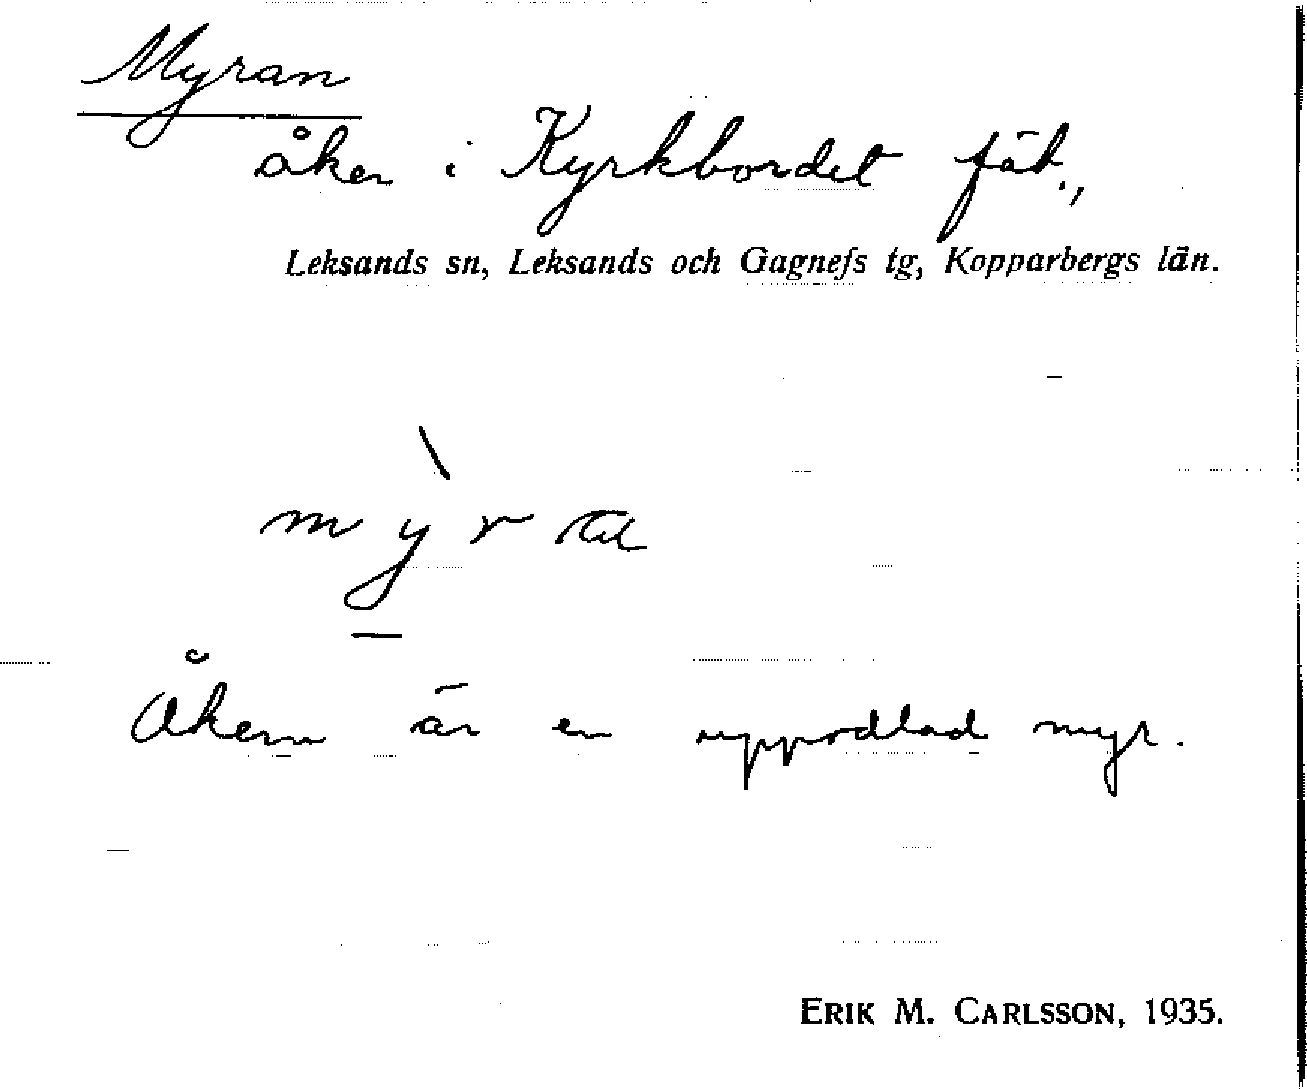 Myran
åker i Kyrkbordet fäb.,
Leksands sn, Leksands och Gagnefs tg, Kopparbergs län.
Åkern är en uppodlad myr.
ERIK M. CARLSSON, 1935.